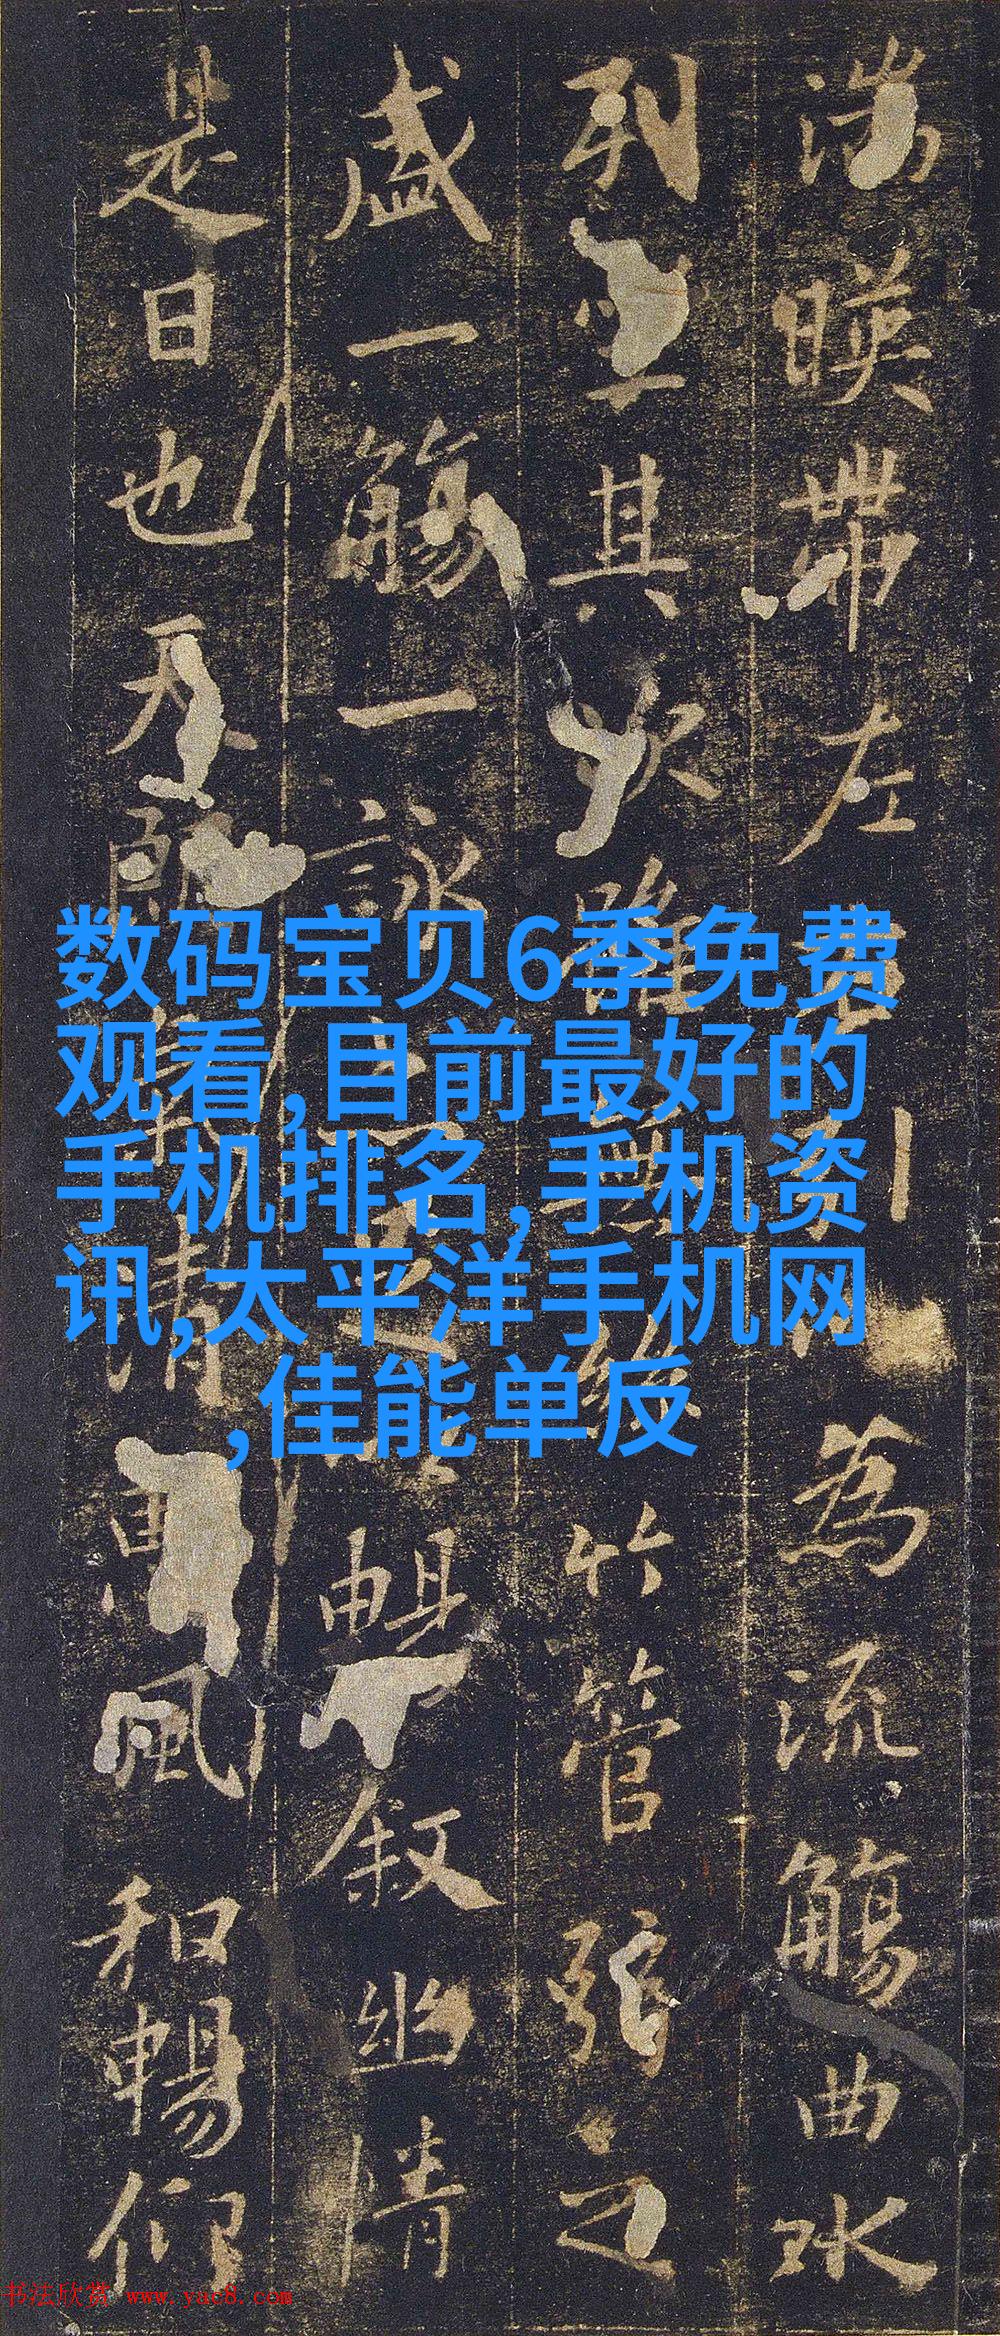 湍暎帶左右
為流觴曲水
列坐其次雖無絲竹管弦之
盛一觴一詠
暢叙幽情
是日也天朗
清惠風和暢仰
数码宝贝6季免费
观看,目前最好的
手机排名,手机资
讯,太平洋手机网
,佳能单反
书法欣赏 www.yac8.com